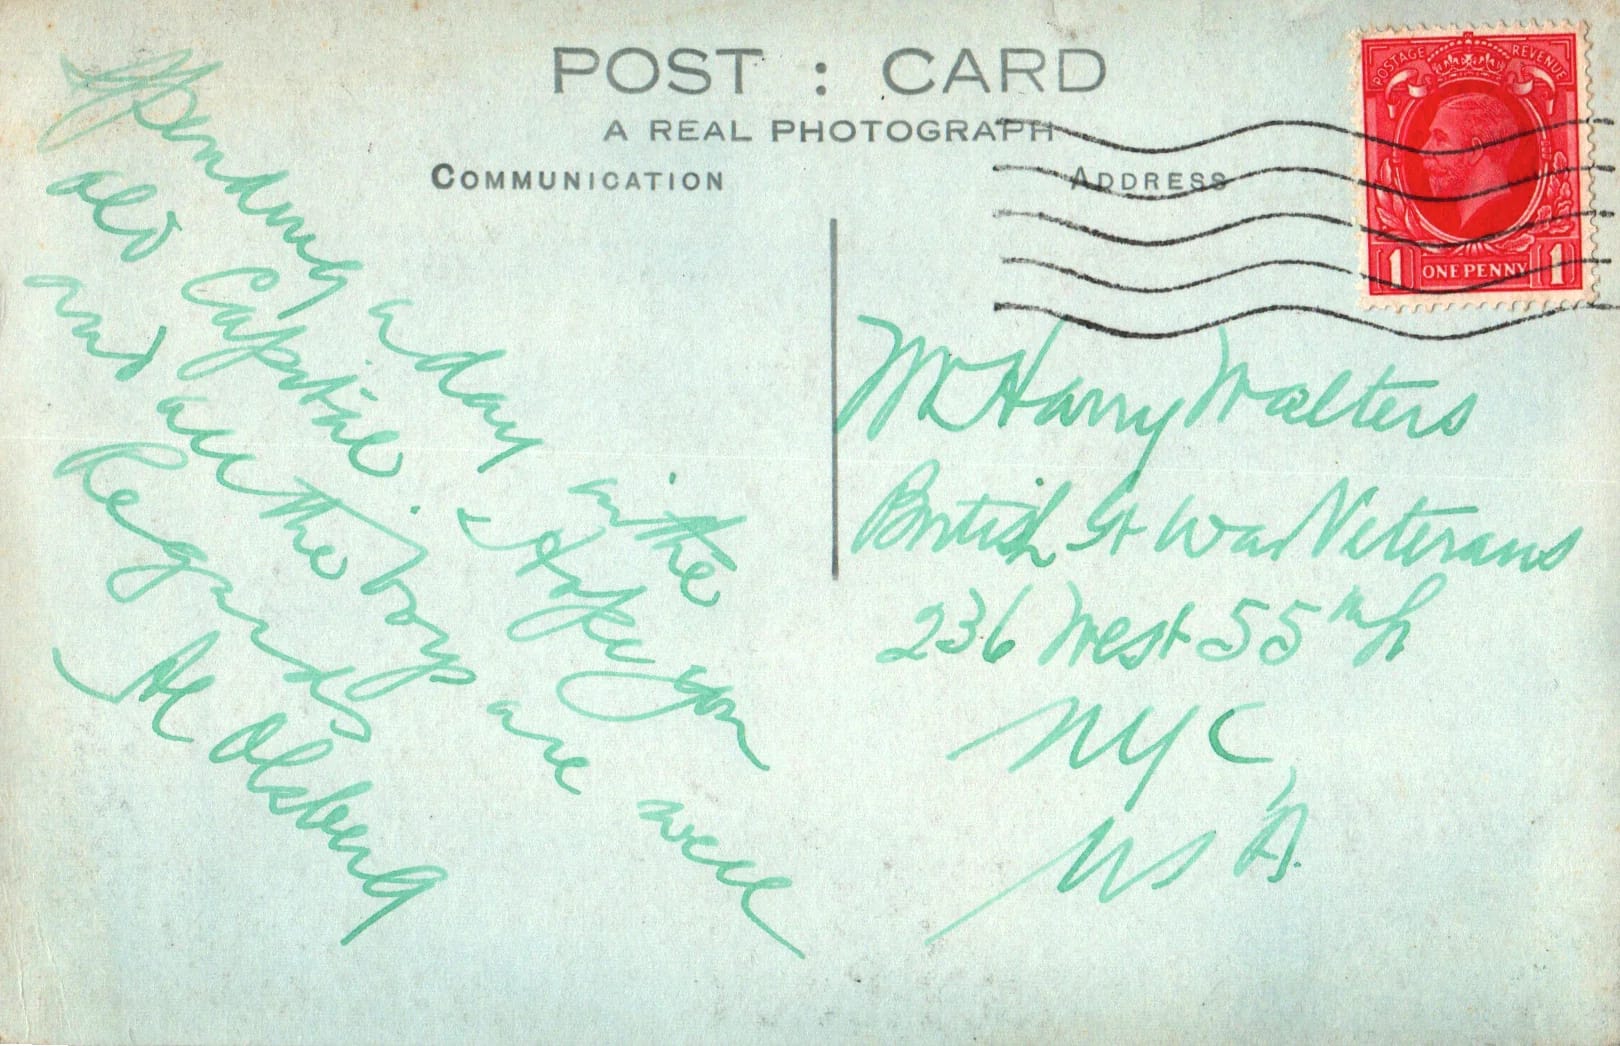 POST : CARD
A REAL PHOTOGRAPH
COMMUNICATION
ADDRESS
POSTAGE REVENUE
1 ONE PENNY 1
Spending a day in the
old Capitile. Hope you
and all the boys are well
Regards
Al Olsberg
Mr Harry Walters
British Gt War Veterans
236 West 55th
NYC
USA.